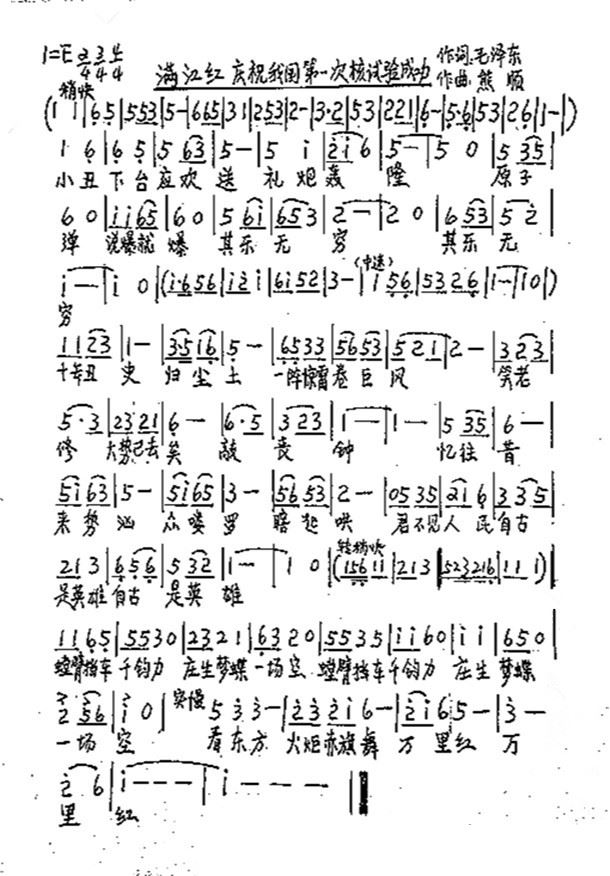 满江红 庆祝我国第一次核试验成功
作词:毛泽东
1=E 2/4 3/4 4/4
作曲:熊顺
稍快
(1 1|6 5|5 5 3|5 -|6 6 5|3 1|2 5 3|2 -|3·2|5 3|2 2 1|6 -|5·6|5 3|2 6|1 -|)
1 6|6 5|5 6 3|5 -|5 i|2 i 6|5 -|5 0|5 3 5|
小丑下台应欢送 礼炮轰隆 原子
6 0|i i 6 5|6 0|5 6 i|6 5 3|2 -|2 0|6 5 3|5 2|
弹 说爆就爆 其乐无穷 其乐无
(中速)
i -|i 0|(i·6 5 6|i 2 i|6 i 5 2|3 -|1 5 6|5 3 2 6|1 -|1 0|)
穷
1 1 2 3|1 -|3 5 1 6|5 -|6 5 3 3|5 6 5 3|5 2 1|2 -|3 2 3|
丑史归尘土 一阵惊雷卷巨风 笑老
5·3|2 3 2 1|6 -|6·5|3 2 3|1 -|1 -|5 3 5|6 -|
修 大势已去矣 敲丧钟 忆往昔
5 i 6 3|5 -|5 i 6 5|3 -|5 6 5 3|2 -|0 5 3 5|2 1 6|3 3 5|
来势汹 众喽罗 瞎起哄 君不见人民自古
转稍快
2 1 3|6 5 6|5 3 2|1 -|1 0|(1 5 6 1 1|2 1 3|5 2 3 2 1 6|1 1 1)|
是英雄自古是英雄
1 1 6 5|5 5 3 0|2 3 2 1|6 3 2 0|5 5 3 5|i i 6 0|i i|6 5 0|
螳臂挡车千钧力 庄生梦蝶一场空 螳臂挡车千钧力 庄生梦蝶
2 5 6|i 0| 突慢 5 3 3 -|2 3 2 i 6 -|2 i 6 5 -|3 -
一场空 看东方 火炬赤旗舞 万里红 万
2 6|i - - -|i - - -‖
里红